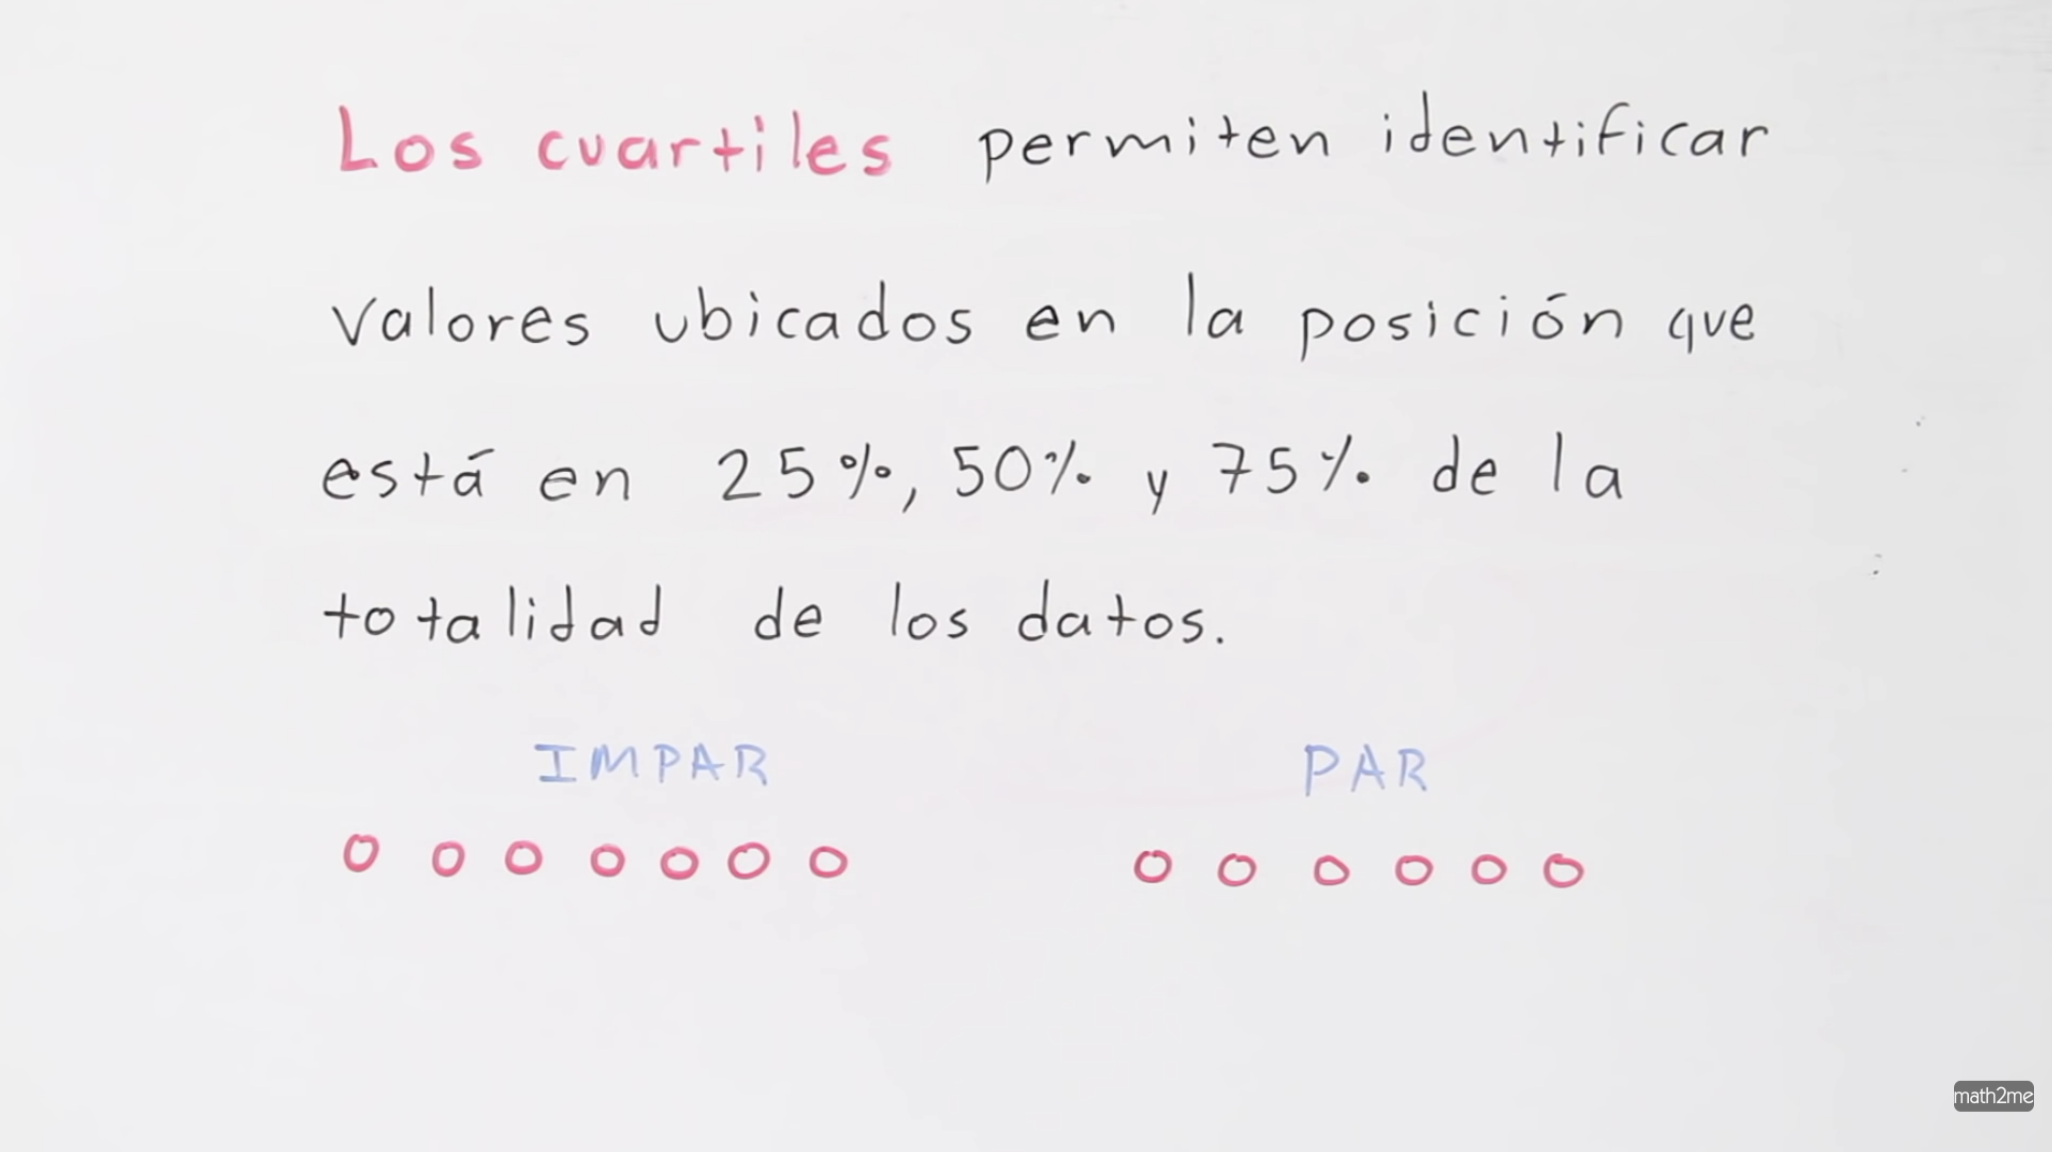 Los cuartiles permiten identificar
valores ubicados en la posición que
está en 25%, 50% y 75% de la
totalidad de los datos.
IMPAR PAR
math2me